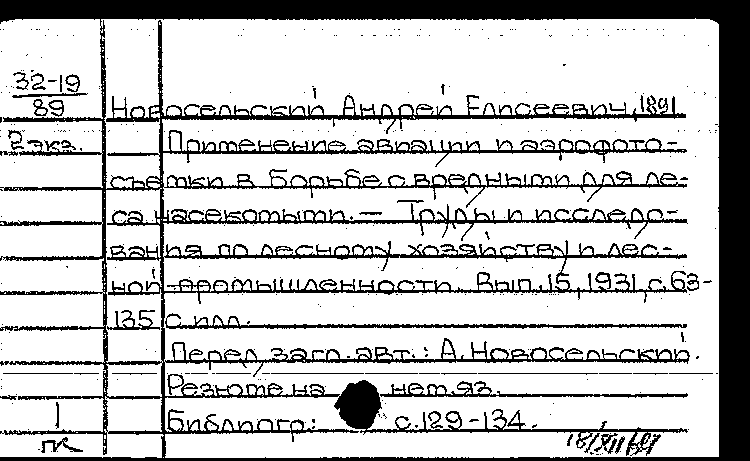 32-19
89
Новосельский, Андрей Елисеевич, 1891
2 экз.
Применение авиации и аэрофото-
съемки в борьбе с вредными для ле-
са насекомыми. — Труды и исследо-
вания по лесному хозяйству и лес-
ной промышленности. Вып. 15, 1931, с. 63-
135 с илл.
Перед загл. авт.: А. Новосельский.
Резюме на нем. яз.
Библиогр: с. 129-134.
1
18/XII 69